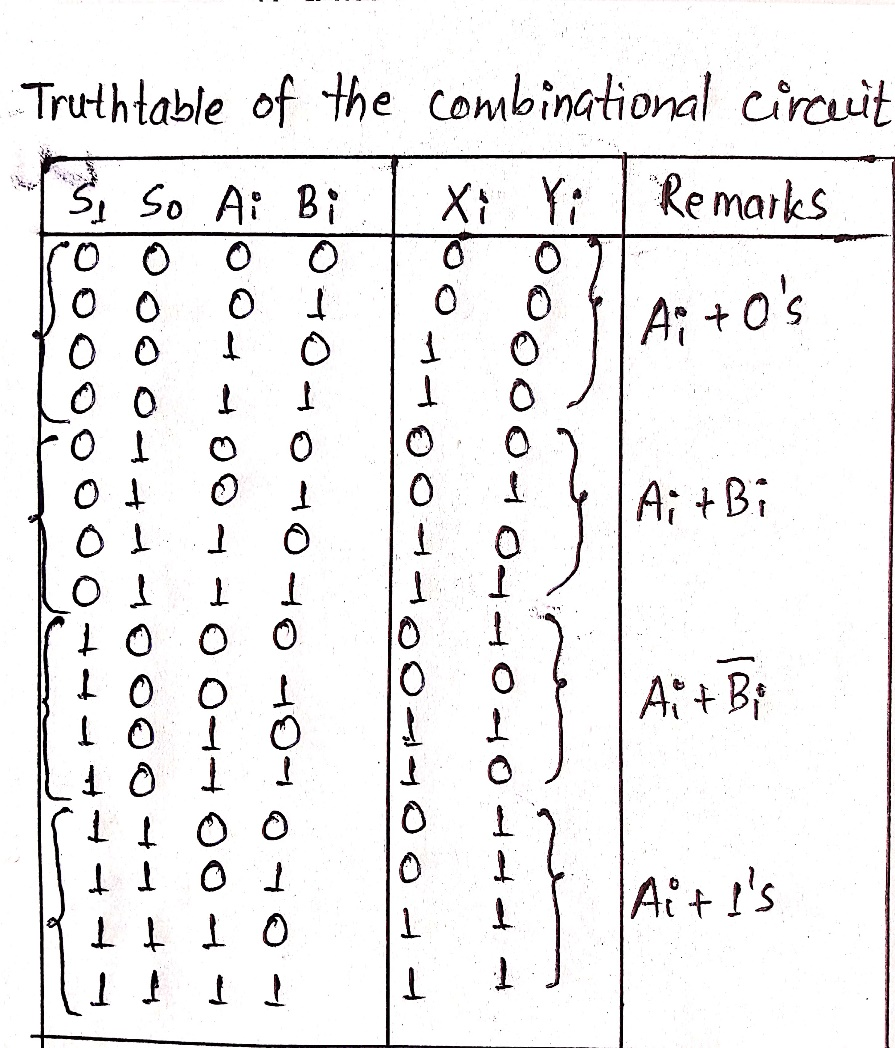 Truthtable of the combinational circuit
S1 S0 Ai Bi Xi Yi Remarks
0 0 0 0 0 0
0 0 0 1 0 0 Ai + 0's
0 0 1 0 1 0
0 0 1 1 1 0
0 1 0 0 0 0
0 1 0 1 0 1 Ai + Bi
0 1 1 0 1 0
0 1 1 1 1 1
1 0 0 0 0 1
1 0 0 1 0 0 Ai + B̅i
1 0 1 0 1 1
1 0 1 1 1 0
1 1 0 0 0 1
1 1 0 1 0 1 Ai + 1's
1 1 1 0 1 1
1 1 1 1 1 1